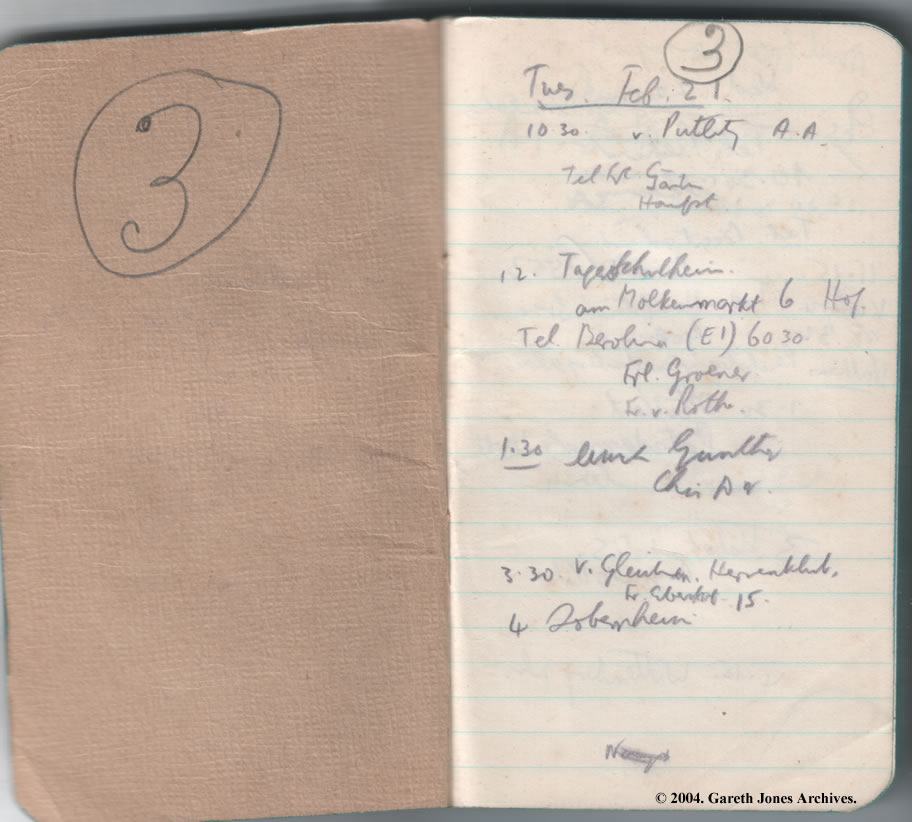 3
3
Tues. Feb. 21.
10 30. v. Putlitz A.A
Tel Frl.
12. Tagesschulheim.
am Molkenmarkt 6 Hof.
Tel. Berolina (E1) 6030.
Frl. Groener
Fr. v. Rothe.
1.30 lunch Gunther
3.30 v. Gleichen. Herrenklub.
Fr. Ebertst. 15.
4
© 2004. Gareth Jones Archives.